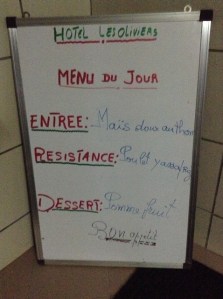 HOTEL LES OLIVIERS
MENU DU JOUR
ENTREE: Maïs doux au thon
RESISTANCE: Poulet yassa
DESSERT: Pomme fruit
Bon appétit